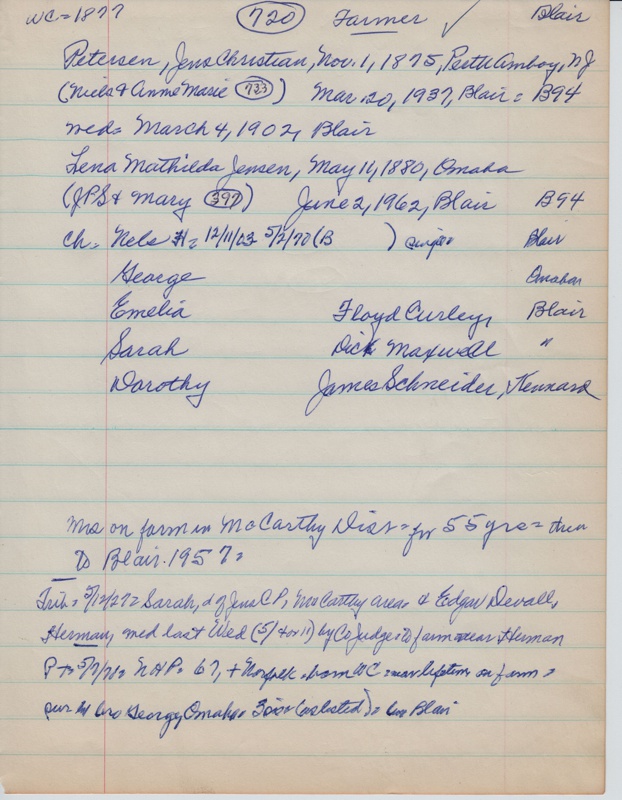 WC = 1877 720 Farmer ✓ Blair
Petersen, Jens Christian, Nov. 1, 1875, Perth Amboy, NJ
(Niels & Anne Marie 733) Mar. 20, 1937, Blair = B94
med = March 4, 1902, Blair
Lena Mathilda Jensen, May 11, 1880, Omaha
(JPS & Mary 397) June 2, 1962, Blair B94
Ch = Nels H = 12/11/03 5/2/70 (B ) Blair
George Omaha
Emelia Floyd Curley, Blair
Sarah Dick Maxwell "
Dorothy James Schneider, Kennard
Mrs on farm in McCarthy Dist = for 55 yrs = then
to Blair 1957 =
Trib = 5/12/27 = Sarah, d of Jens CP, McCarthy area & Edgar Devall,
Herman, med last Wed (5/4 or 11) by Co Judge = to farm near Herman
P T = 5/7/70 = NHP = 67, + Norfolk = born WC = near lifetime on farm =
sur by bro George, Omaha = 3 sis (as listed) = Blair